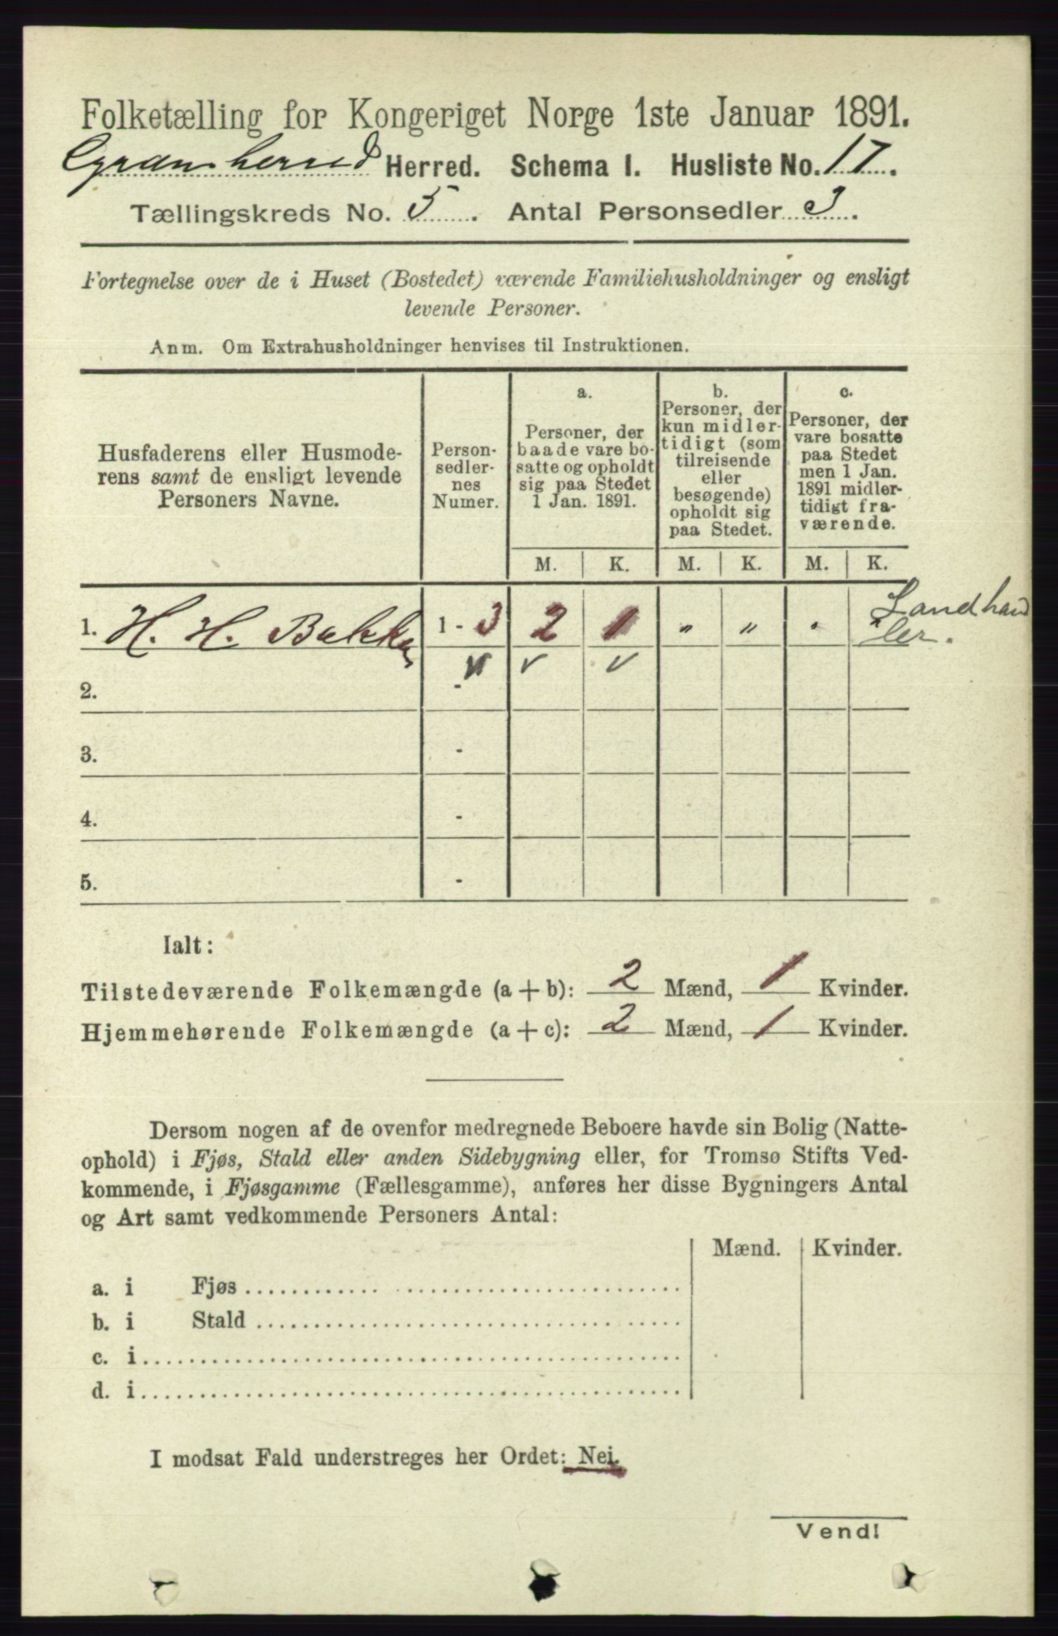 Folketælling for Kongeriget Norge 1ste Januar 1891.
Gransherred Herred. Schema I. Husliste No. 17.
Tællingskreds No. 5. Antal Personsedler 3.
Fortegnelse over de i Huset (Bostedet) værende Familiehusholdninger og ensligt
levende Personer.
Anm. Om Extrahusholdninger henvises til Instruktionen.
Husfaderens eller Husmode-
rens samt de ensligt levende
Personers Navne.
Person-
sedler-
nes
Numer.
a.
Personer, der
baade vare bo-
satte og opholdt
sig paa Stedet
1 Jan. 1891.
b.
Personer, der
kun midler-
tidigt (som
tilreisende
eller
besøgende)
opholdt sig
paa Stedet.
c.
Personer, der
vare bosatte
paa Stedet
men 1 Jan.
1891 midler-
tidigt fra-
værende.
M. K. M. K. M. K.
1. H. H. Bakka 1 - 3 2 1 " " " "
Landhand
ler.
2. -
3. -
4. -
5. -
Ialt:
Tilstedeværende Folkemængde (a + b): 2 Mænd, 1 Kvinder.
Hjemmehørende Folkemængde (a + c): 2 Mænd, 1 Kvinder.
Dersom nogen af de ovenfor medregnede Beboere havde sin Bolig (Natte-
ophold) i Fjøs, Stald eller anden Sidebygning eller, for Tromsø Stifts Ved-
kommende, i Fjøsgamme (Fællesgamme), anføres her disse Bygningers Antal
og Art samt vedkommende Personers Antal:
Mænd. Kvinder.
a. i Fjøs
b. i Stald
c. i
d. i
I modsat Fald understreges her Ordet: Nei.
Vend!